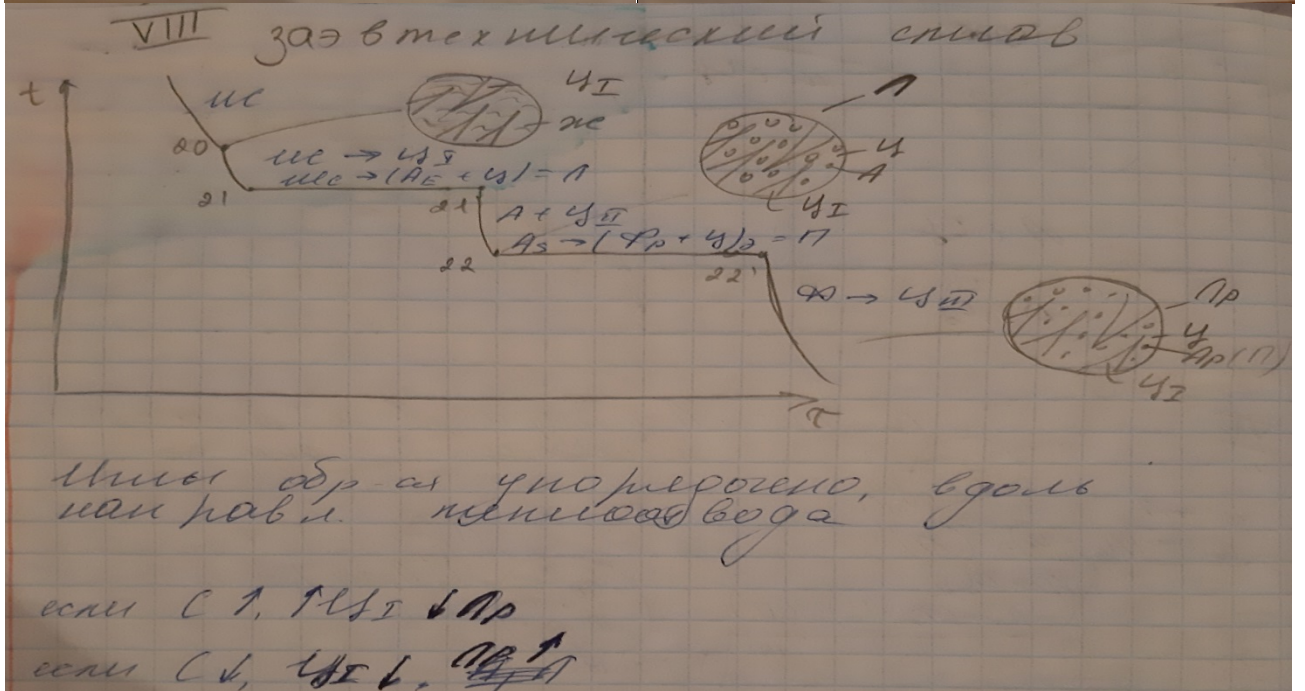 VIII заэвтектический сплав
t
ЖС
ЦI
Ж
20
ЖС → ЦI
ЖС → (АЕ + Ц) = Л
21
21'
Л
Ц
А
ЦI
А + ЦII
АS → (ФР + Ц)Э = П
22
22'
Ф → ЦIII
Лр
Ц
Ар(П)
ЦI
τ
Иглы обр-ся упорядочено, вдоль
направл. теплоотвода
если С ↑, ↑ЦI ↓Лр
если С↓, ЦI ↓, Лр ↑